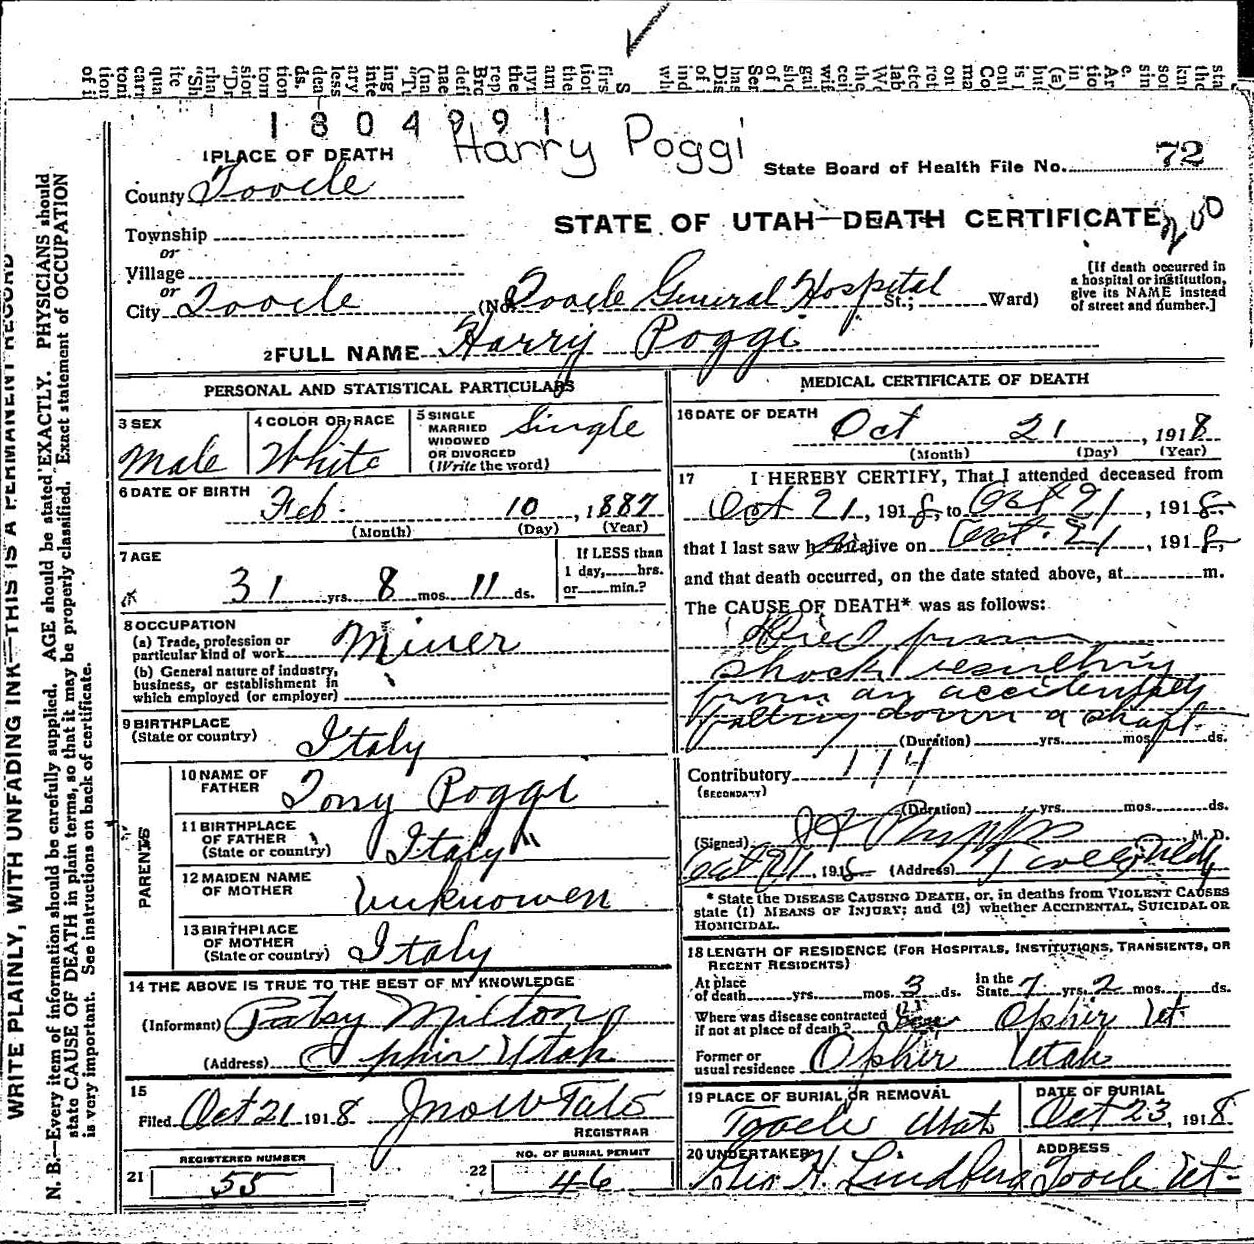 1804991
Harry Poggi
1 PLACE OF DEATH
State Board of Health File No. 72
County Tooele
STATE OF UTAH—DEATH CERTIFICATE
Township
or
Village
or
City Tooele (No. Tooele General Hospital St.; Ward)
[If death occurred in
a hospital or institution,
give its NAME instead
of street and number.]
2 FULL NAME Harry Poggi
PERSONAL AND STATISTICAL PARTICULARS
3 SEX
Male
4 COLOR OR RACE
White
5 SINGLE
MARRIED
WIDOWED
OR DIVORCED
(Write the word)
Single
6 DATE OF BIRTH
Feb. 10, 1887
(Month) (Day) (Year)
7 AGE
31 yrs. 8 mos. 11 ds.
If LESS than
1 day, hrs.
or min.?
8 OCCUPATION
(a) Trade, profession or
particular kind of work Miner
(b) General nature of industry,
business, or establishment in
which employed (or employer)
9 BIRTHPLACE
(State or country) Italy
PARENTS
10 NAME OF
FATHER Tony Poggi
11 BIRTHPLACE
OF FATHER
(State or country) Italy
12 MAIDEN NAME
OF MOTHER Unknowen
13 BIRTHPLACE
OF MOTHER
(State or country) Italy
14 THE ABOVE IS TRUE TO THE BEST OF MY KNOWLEDGE
(Informant) Patsy Milton
(Address) Ophir Utah
15
Filed Oct 21 1918 Jno W Tate
REGISTRAR
21 REGISTERED NUMBER
55
22 NO. OF BURIAL PERMIT
46
MEDICAL CERTIFICATE OF DEATH
16 DATE OF DEATH
Oct 21, 1918
(Month) (Day) (Year)
17 I HEREBY CERTIFY, That I attended deceased from
Oct 21, 1918, to Oct 21, 1918.
that I last saw h alive on Oct. 21, 1918,
and that death occurred, on the date stated above, at m.
The CAUSE OF DEATH* was as follows:
Died from
shock resulting
from an accidentally
falling down a shaft.
(Duration) yrs. mos. ds.
Contributory 174
(SECONDARY)
(Duration) yrs. mos. ds.
(Signed) M. D.
Oct 21, 1918 (Address) Tooele, Utah
* State the DISEASE CAUSING DEATH, or, in deaths from VIOLENT CAUSES
state (1) MEANS OF INJURY; and (2) whether ACCIDENTAL, SUICIDAL OR
HOMICIDAL.
18 LENGTH OF RESIDENCE (FOR HOSPITALS, INSTITUTIONS, TRANSIENTS, OR
RECENT RESIDENTS)
At place
of death yrs. mos. 3 ds.
In the
State 7 yrs. 2 mos. ds.
Where was disease contracted
if not at place of death? Opher Ut.
Former or
usual residence Opher Utah
19 PLACE OF BURIAL OR REMOVAL
Tooele Utah
DATE OF BURIAL
Oct 23, 1918
20 UNDERTAKER
Geo H. Lindberg
ADDRESS
Tooele Ut-
WRITE PLAINLY, WITH UNFADING INK—THIS IS A PERMANENT RECORD
N. B.—Every item of information should be carefully supplied. AGE should be stated EXACTLY. PHYSICIANS should
state CAUSE OF DEATH in plain terms, so that it may be properly classified. Exact statement of OCCUPATION
is very important. See instructions on back of certificate.